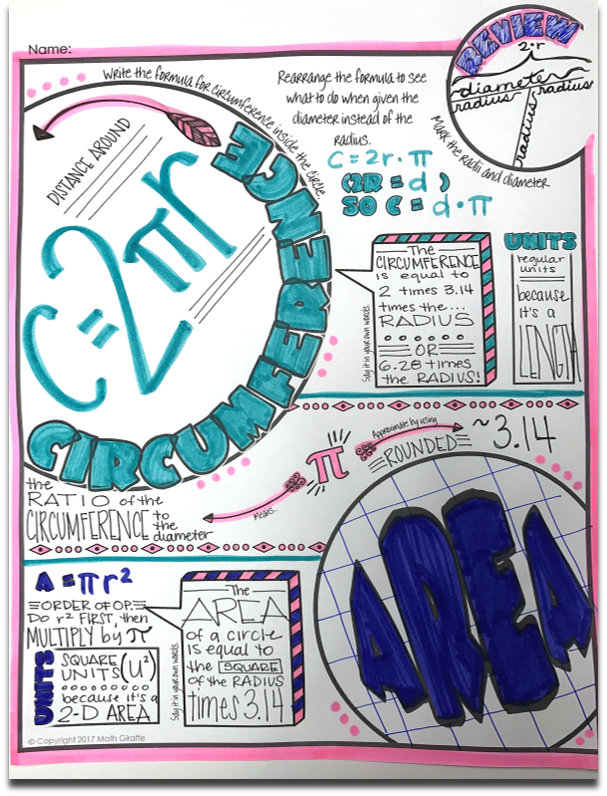 Name:
REVIEW
2·r
diameter
radius radius
radius
Mark the radii and diameter
Write the formula for circumference inside the circle.
DISTANCE AROUND
C = 2πr
CIRCUMFERENCE
Rearrange the formula to see
what to do when given the
diameter instead of the
radius.
C = 2r · π
(2R = d )
SO C = d · π
Say it in your own words.
The
CIRCUMFERENCE
is equal to
2 times 3.14
times the...
RADIUS
OR
6.28 times
the RADIUS!
UNITS
regular
units
because
it's a
LENGTH
π
Approximate by using
ROUNDED
~3.14
Means...
the
RATIO of the
CIRCUMFERENCE to
the
diameter
A = πr²
ORDER OF OP.
DO r² FIRST, then
MULTIPLY by π
UNITS
SQUARE
UNITS (U²)
because it's a
2-D AREA
Say it in your own words.
The
AREA
of a circle
is equal to
the SQUARE
of the RADIUS
times 3.14
AREA
© Copyright 2017 Math Giraffe